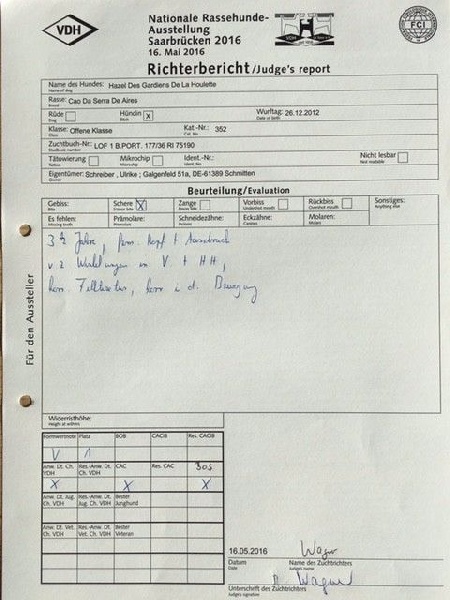 VDH
Nationale Rassehunde-
Ausstellung
Saarbrücken 2016
16. Mai 2016
FCI
Richterbericht/Judge's report
Name des Hundes: Hazel Des Gardiens De La Houlette
Rasse: Cao Da Serra De Aires
Rüde Hündin x Wurftag: 26.12.2012
Klasse: Offene Klasse Kat-Nr.: 352
Zuchtbuch-Nr.: LOF 1 B.PORT. 177/36 RI 75190
Tätowierung Mikrochip Ident.-Nr.: Nicht lesbar
Eigentümer: Schreiber , Ulrike ; Galgenfeld 51a, DE-61389 Schmitten
Beurteilung/Evaluation
Gebiss: Schere X Zange Vorbiss Rückbiss Sonstiges:
Es fehlen: Prämolare: Schneidezähne: Eckzähne: Molaren:
3 ½ Jahre, fem. Kopf + Ausdruck
v z Winkelungen in V. + HH,
Für den Aussteller
Widerristhöhe
Formwertnote Platz BOB CACIB Res. CACIB
V 1
Anw. Dt. Ch. VDH Res.-Anw. Dt. Ch. VDH CAC Res. CAC
X X X
Anw. Dt. Jug. Ch. VDH Res.-Anw. Dt. Jug. Ch. VDH Bester Junghund
Anw. Dt. Vet. Ch. VDH Res.-Anw. Dt. Vet. Ch. VDH Bester Veteran
16.05.2016 Wagner
Datum Name des Zuchtrichters
Date Name of judge
Wagner
Unterschrift des Zuchtrichters
Judges signature